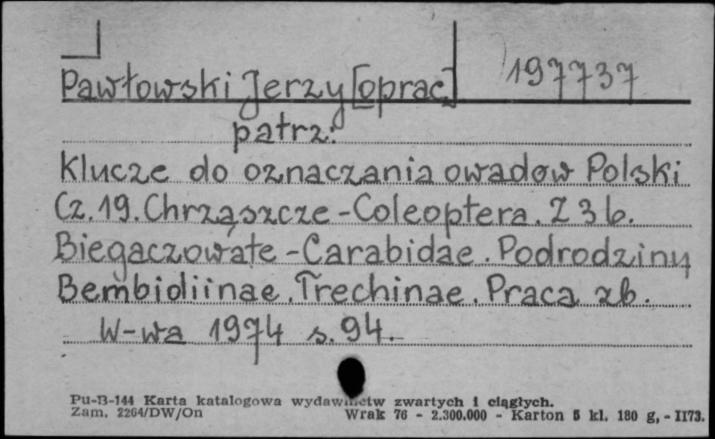 Pawłowski Jerzy [oprac] 197737
patrz:
Klucze do oznaczania owadów Polski
Cz. 19. Chrząszcze - Coleoptera. Z 3b.
Biegaczowate - Carabidae. Podrodziny
Bembidiinae, Trechinae. Praca zb.
W-wa 1974 s. 94.
Pu-B-144 Karta katalogowa wydawnictw zwartych i ciągłych.
Zam. 2264/DW/On Wrak 76 - 2.300.000 - Karton 5 kl. 180 g, - II73.